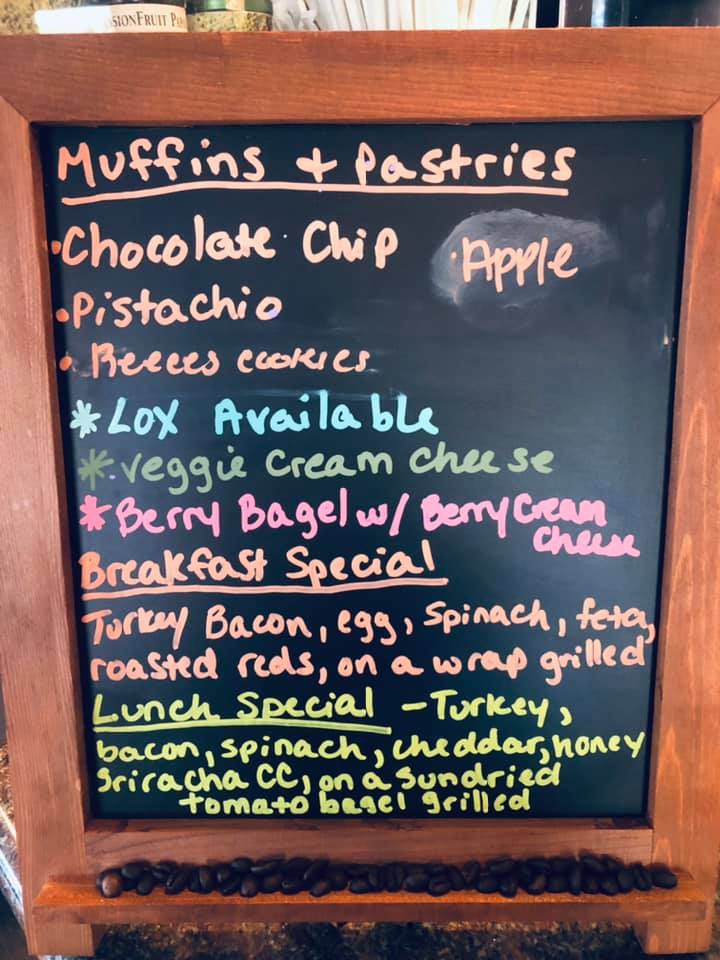 SIONFRUIT P
Muffins + Pastries
•Chocolate Chip •Apple
•Pistachio
•Reeces cookies
*Lox Available
*Veggie Cream cheese
*Berry Bagel w/ Berry Cream
cheese
Breakfast Special
Turkey Bacon, egg, Spinach, feta,
roasted reds, on a wrap grilled
Lunch Special - Turkey,
bacon, spinach, cheddar, honey
Sriracha CC, on a Sundried
tomato bagel grilled